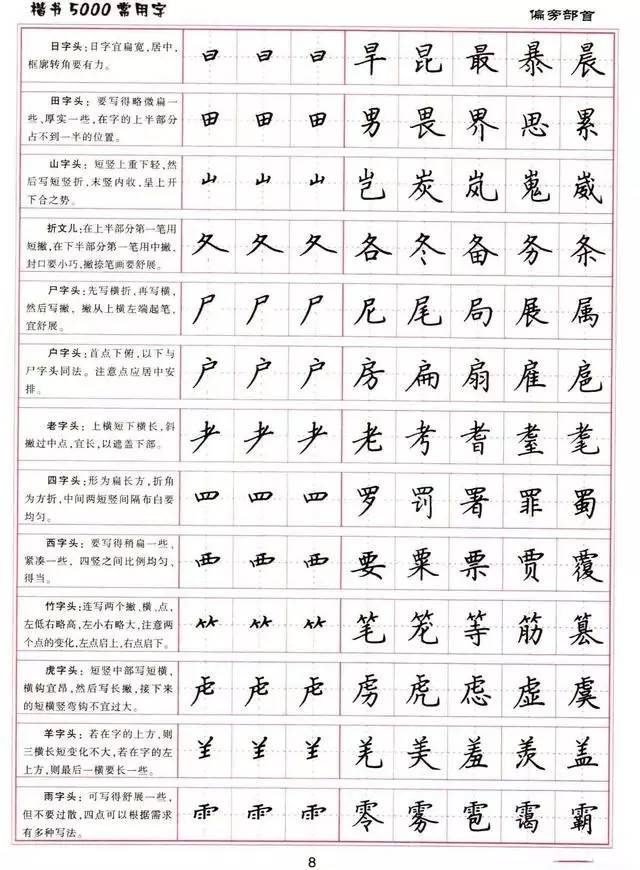 楷书5000常用字
偏旁部首
日字头：日字宜扁宽,居中,
框廓转角要有力。
曰 曰 曰 旱 昆 最 暴 晨
田字头：要写得略微扁一
些,厚实一些,在字的上半部分
占不到一半的位置。
田 田 田 男 畏 界 思 累
山字头：短竖上重下轻,然
后写短竖折,末竖内收,呈上开
下合之势。
山 山 山 岂 炭 岚 嵬 崴
折文儿：在上半部分第一笔用
短撇,在下半部分第一笔用中撇,
封口要小巧,撇捺笔画要舒展。
夂 夂 夂 各 冬 备 务 条
尸字头：先写横折,再写横,
然后写撇，撇从上横左端起笔,
宜舒展。
尸 尸 尸 尼 尾 局 展 属
户字头：首点下俯,以下与
尸字头同法。注意点应居中安
排。
户 户 户 房 扁 扇 雇 扈
老字头：上横短下横长,斜
撇过中点,宜长,以遮盖下部。
耂 耂 耂 老 考 耆 耋 耄
四字头：形为扁长方,折角
为方折,中间两短竖间隔布白要
均匀。
罒 罒 罒 罗 罚 署 罪 蜀
西字头：要写得稍扁一些,
紧凑一些，四竖之间比例均匀、
得当。
覀 覀 覀 要 粟 票 贾 覆
竹字头：连写两个撇、横、点,
左低右略高,左小右略大,注意两
个点的变化,左点启上,右点启下。
⺮ ⺮ ⺮ 笔 笼 等 筋 篡
虎字头：短竖中部写短横,
横钩宜昂,然后写长撇,接下来
的短横竖弯钩不宜过大。
虍 虍 虍 虏 虎 虑 虚 虞
羊字头：若在字的上方,则
三横长短变化不大,若在字的左
上方,则最后一横要长一些。
⺷ ⺷ ⺷ 羌 美 羞 羡 盖
雨字头：可写得舒展一些,
但不要过散,四点可以根据需求
有多种写法。
⻗ ⻗ ⻗ 零 雾 雹 霭 霸
8